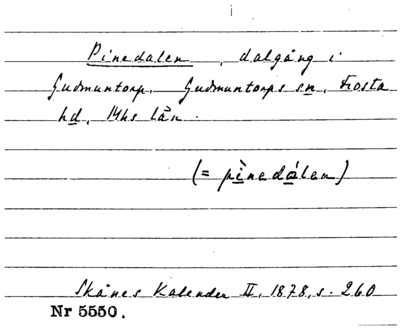 Pinedalen, dalgång i
Gudmuntorp, Gudmuntorps sn, Frosta
hd, Mhs län.
(= pìnedálen)
Skånes Kalender II, 1878, s. 260
Nr 5550.